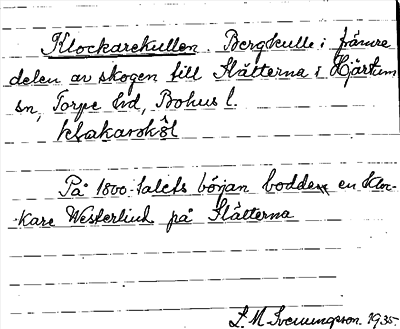 Klockarekullen. Bergkulle i främre
delen av skogen till Slätterna i Hjärtum
sn, Torpe hd, Bohus l.
klakarskôl
På 1800-talets början bodde en klo-
kare Westerlind på Slätterna
L. M Svenungson. 1935.